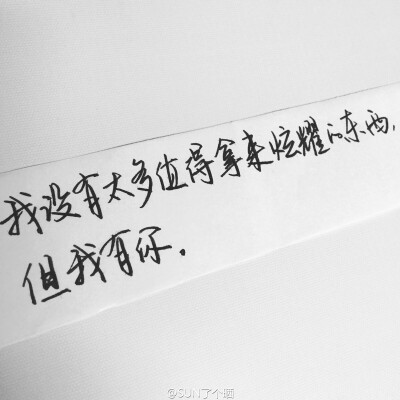 我没有太多值得拿来炫耀的东西，
但我有你.
@SUN了个晒